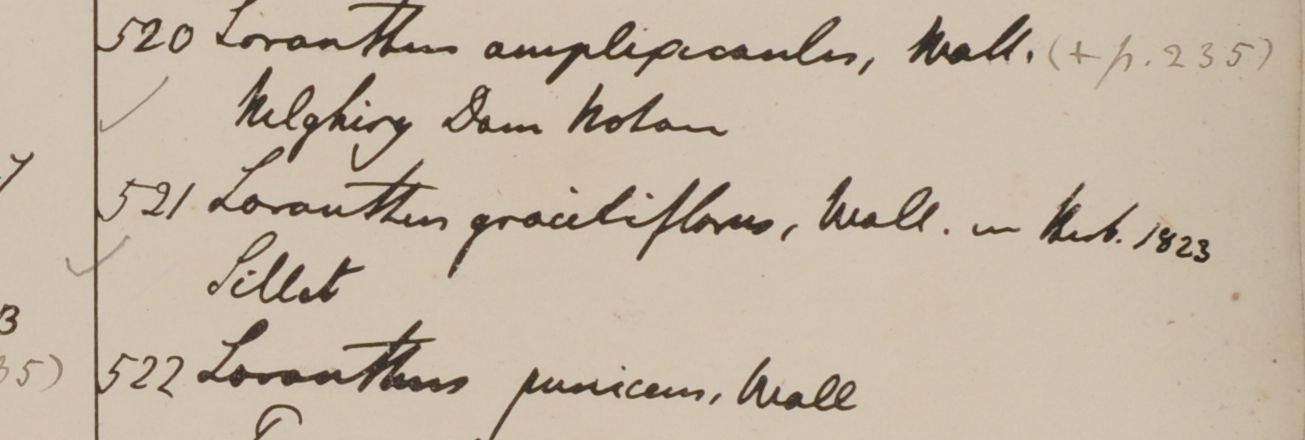 520 Loranthus amplexicaulis, Wall. (+ p. 235)
Nilghiry Dom Noton
521 Loranthus graciliflorus, Wall. in Herb. 1823
Sillet
522 Loranthus puniceus, Wall
35)